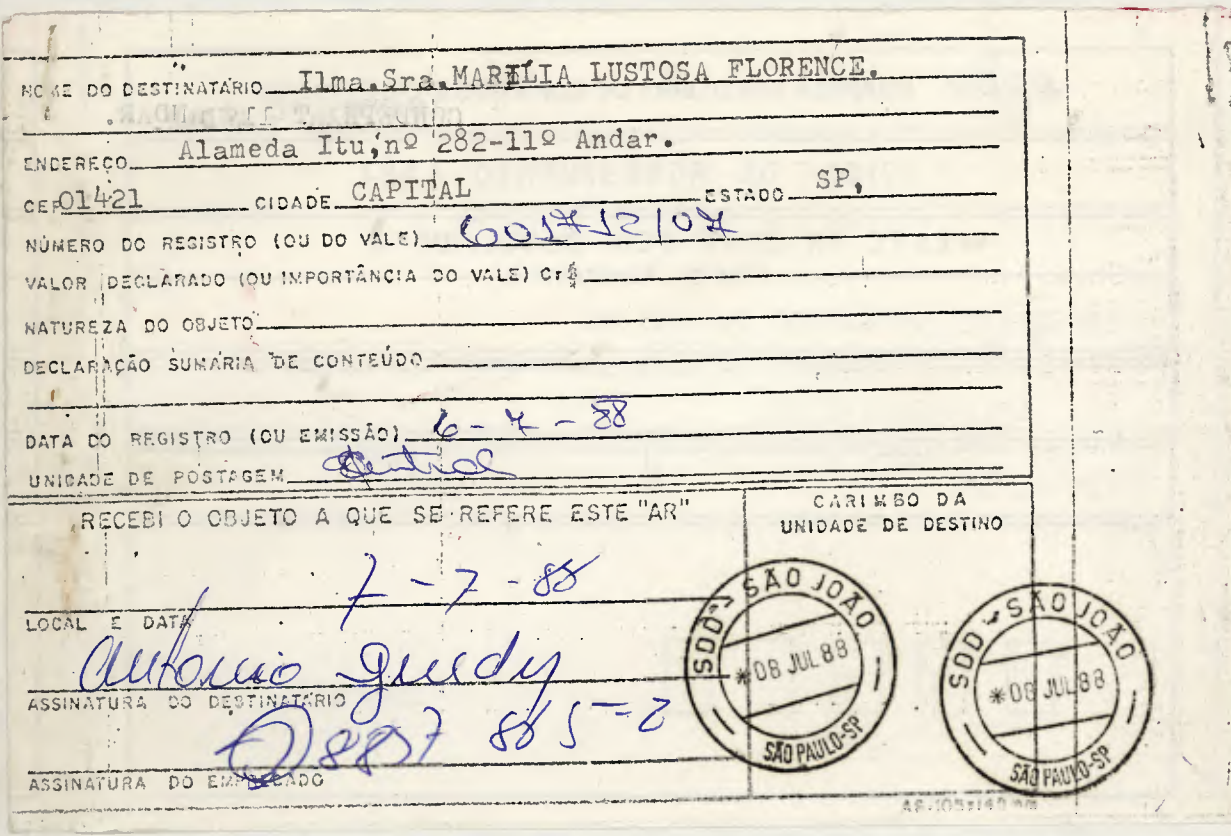 NOME DO DESTINATÁRIO Ilma.Sra.MARILIA LUSTOSA FLORENCE.
ENDEREÇO Alameda Itu,nº 282-11º Andar.
CEP 01421 CIDADE CAPITAL ESTADO SP,
NÚMERO DO REGISTRO (OU DO VALE) 601712/07
VALOR DECLARADO (OU IMPORTÂNCIA DO VALE) Cr$
NATUREZA DO OBJETO
DECLARAÇÃO SUMÁRIA DE CONTEÚDO
DATA DO REGISTRO (OU EMISSÃO) 6-7-88
UNIDADE DE POSTAGEM Central
RECEBI O OBJETO A QUE SE REFERE ESTE "AR"
CARIMBO DA
UNIDADE DE DESTINO
7-7-88
LOCAL E DATA
Antonio
ASSINATURA DO DESTINATÁRIO
8897 865-2
ASSINATURA DO EMPREGADO
SDD - SÃO JOÃO
*08 JUL 88
SÃO PAULO-SP
SDD - SÃO JOÃO
*08 JUL 88
SÃO PAULO-SP